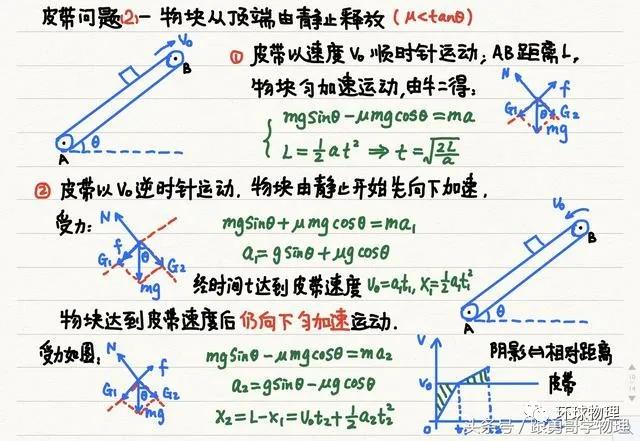 皮带问题(2)一物块从顶端由静止释放(μ<tanθ)
V₀
B
A
θ
① 皮带以速度V₀顺时针运动；AB距离L，
物块匀加速运动,由牛二得：
mgsinθ-μmgcosθ=ma
L=½at² ⇒ t=√(2L/a)
N
f
G₁
θ
G₂
mg
② 皮带以V₀逆时针运动．物块由静止开始先向下加速．
受力：
N
f
G₁
θ
G₂
mg
mgsinθ+μmgcosθ=ma₁
a₁=gsinθ+μgcosθ
经时间t达到皮带速度 V₀=a₁t₁, X₁=½a₁t₁²
V₀
B
A
θ
物块达到皮带速度后仍向下匀加速运动．
受力如图：
N
f
G₁
θ
G₂
mg
mgsinθ-μmgcosθ=ma₂
a₂=gsinθ-μgcosθ
X₂=L-X₁=V₀t₂+½a₂t₂²
V
V₀
0
t₁
t₂
阴影⇔相对距离
皮带
环球物理
头条号／跟勇哥学物理